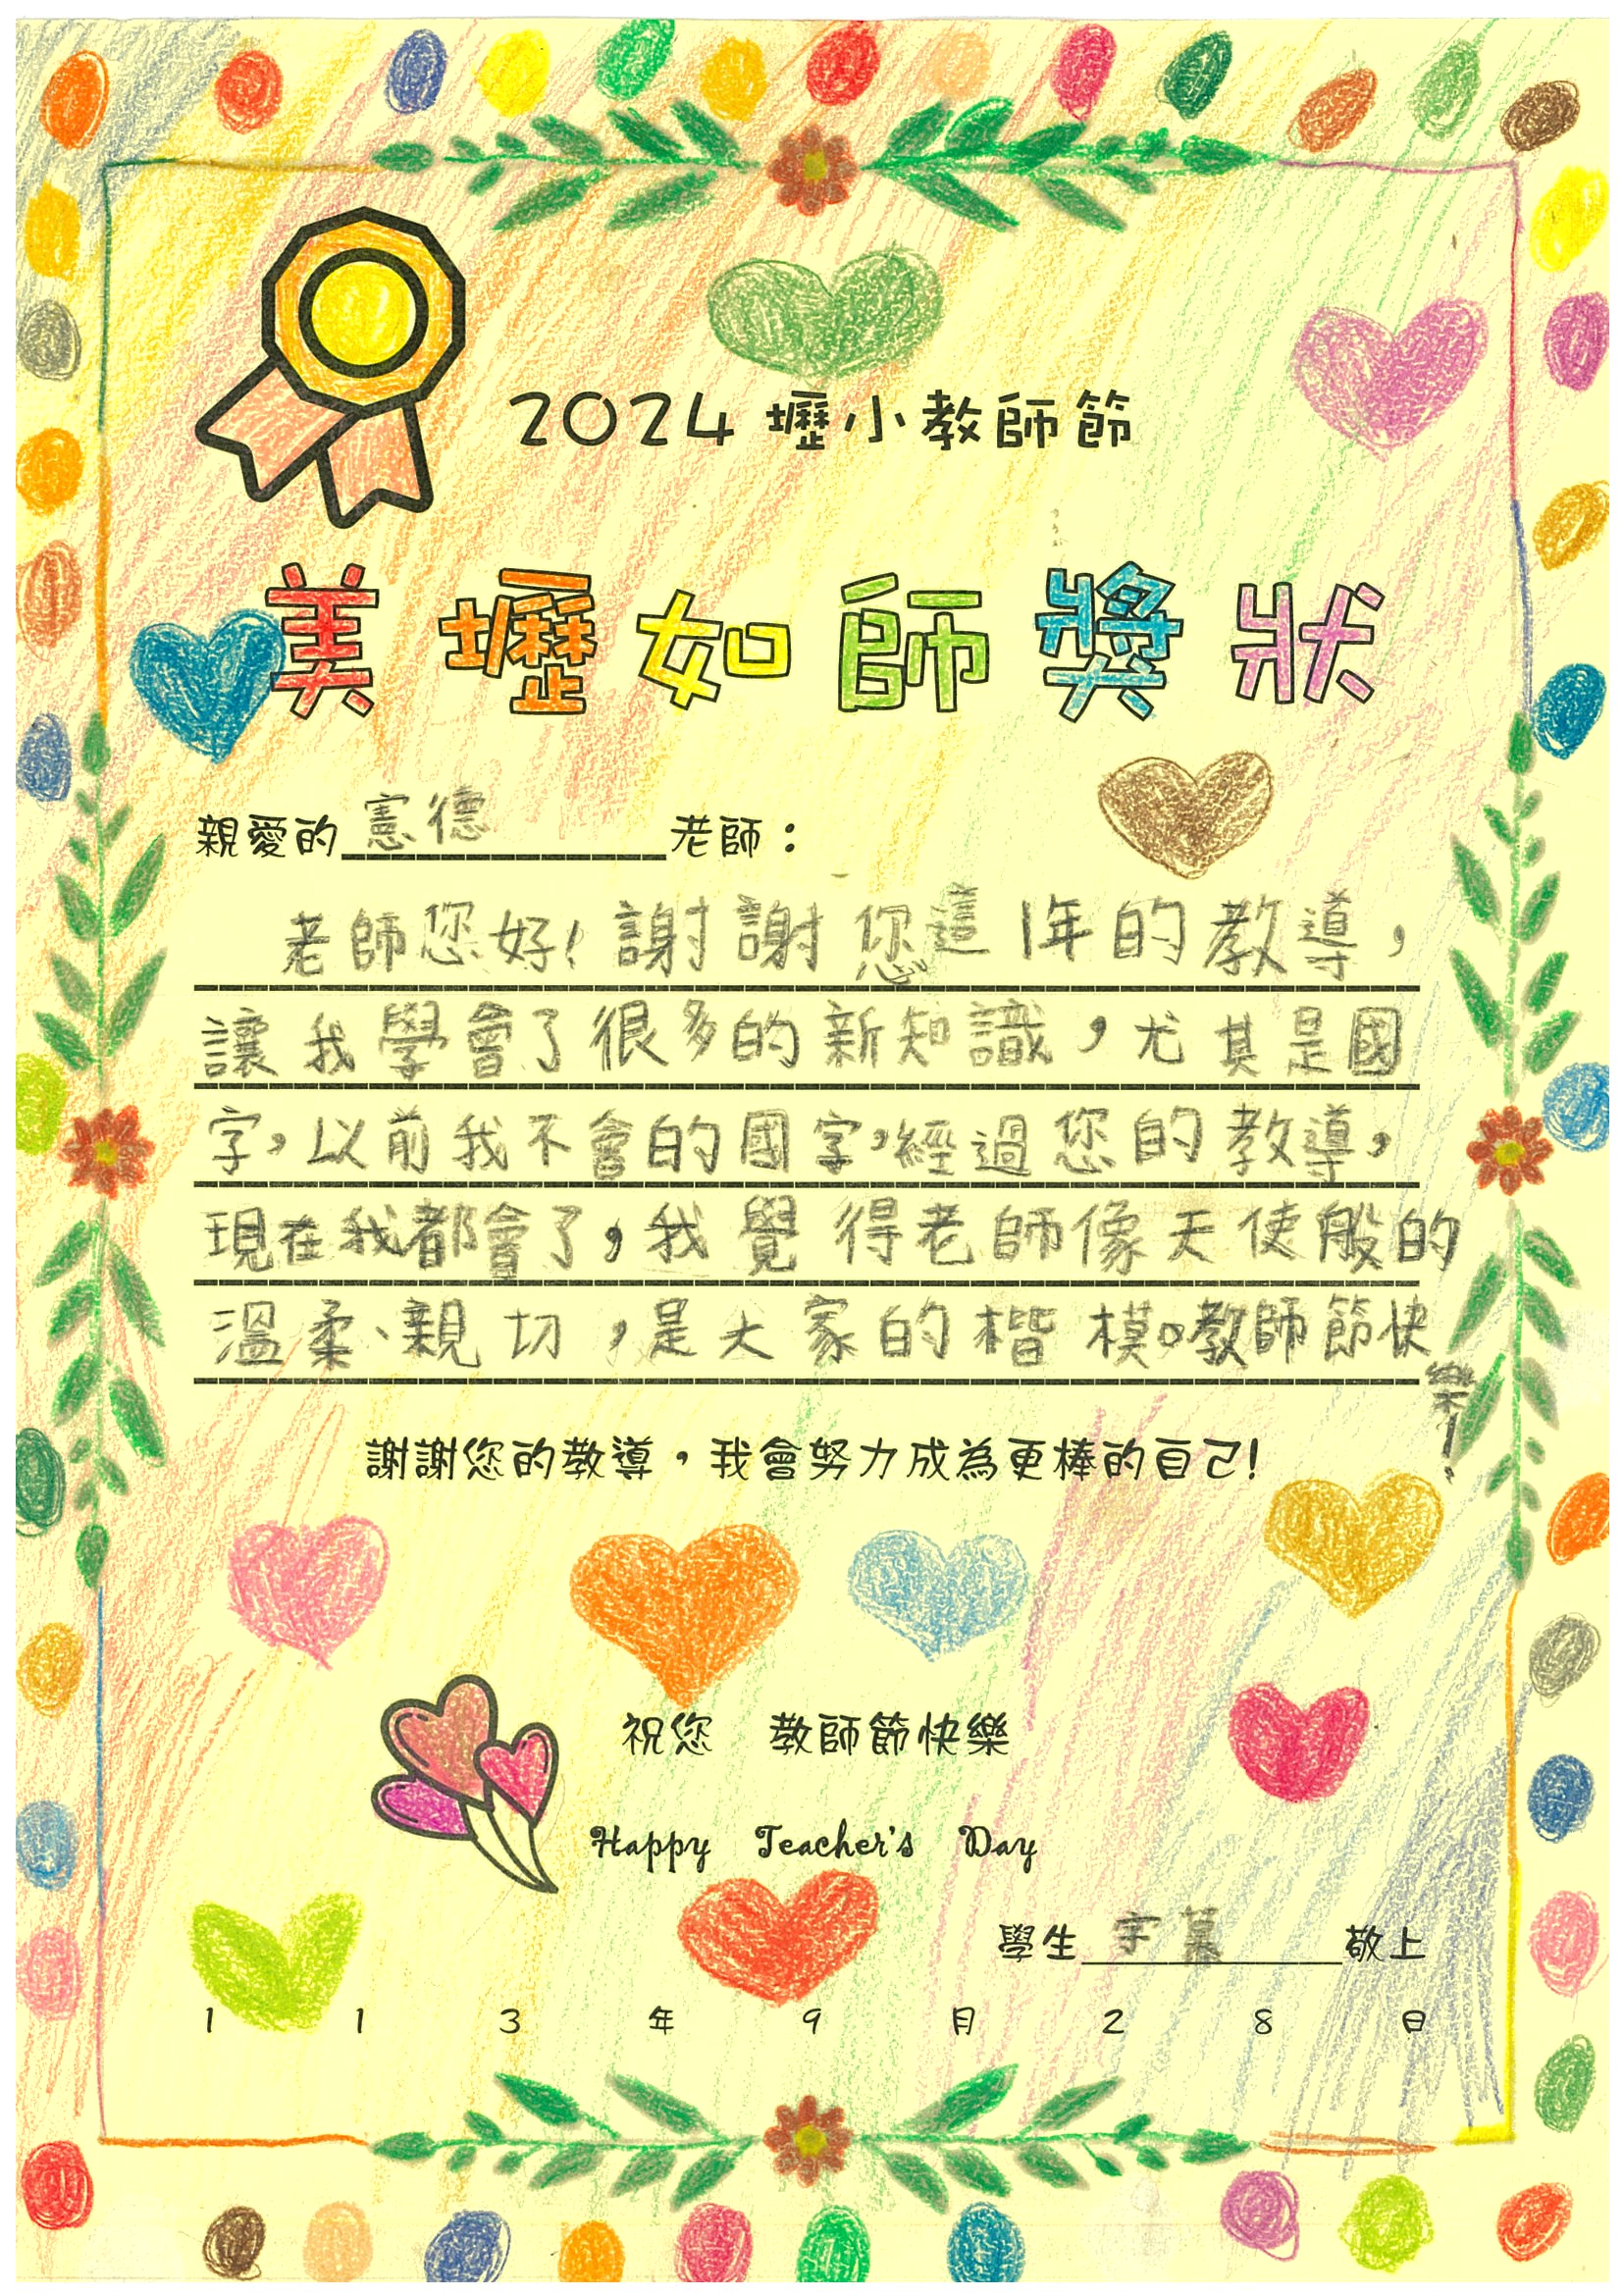 2024 壢小教師節
美壢如師獎狀
親愛的憲德老師：
老師您好!謝謝您這1年的教導，
讓我學會了很多的新知識，尤其是國
字，以前我不會的國字，經過您的教導，
現在我都會了，我覺得老師像天使般的
溫柔、親切，是大家的楷模。教師節快
樂!
謝謝您的教導，我會努力成為更棒的自己!
祝您 教師節快樂
Happy Teacher's Day
學生 宇 敬上
113年9月28日